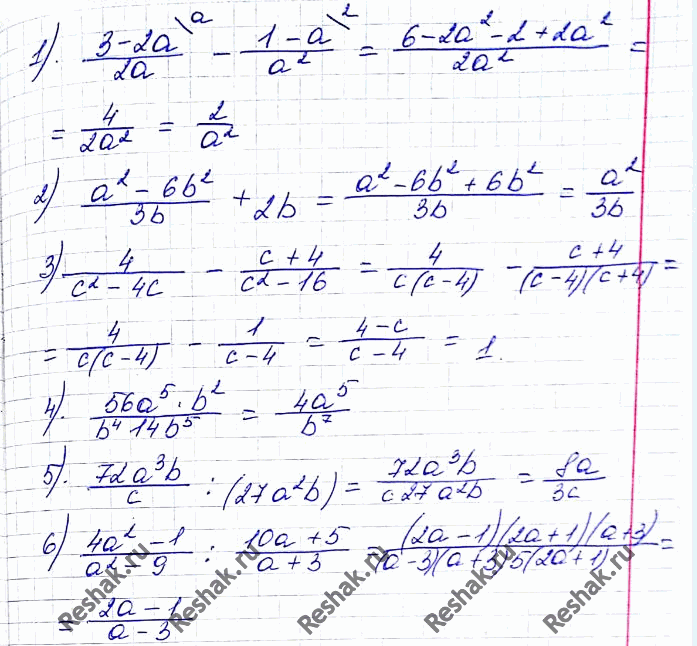 1). (3-2a)/(2a) \a - (1-a)/(a²) \2 = (6-2a²-2+2a²)/(2a²) =
= 4/(2a²) = 2/(a²)
2) (a²-6b²)/(3b) + 2b = (a²-6b²+6b²)/(3b) = a²/(3b)
3) 4/(c²-4c) - (c+4)/(c²-16) = 4/(c(c-4)) - (c+4)/((c-4)(c+4)) =
= 4/(c(c-4)) - 1/(c-4) = (4-c)/(c-4) = 1.
4). (56a⁵·b²)/(b⁴ 14b⁵) = (4a⁵)/(b⁷)
5). (72a³b)/c : (27a²b) = (72a³b)/(c 27a²b) = (8a)/(3c)
6) (4a²-1)/(a²-9) : (10a+5)/(a+3) = ((2a-1)(2a+1)(a+3))/((a-3)(a+3)5(2a+1)) =
= (2a-1)/(a-3)
Reshak.ru Reshak.ru Reshak.ru Reshak.ru Reshak.ru